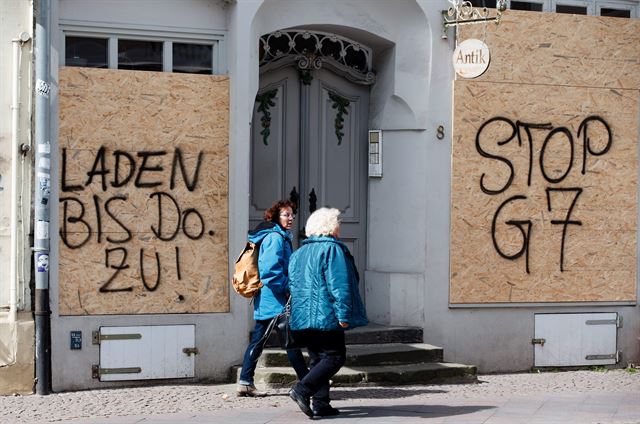 LADEN
BIS DO.
ZU!
Antik
8
STOP
G7